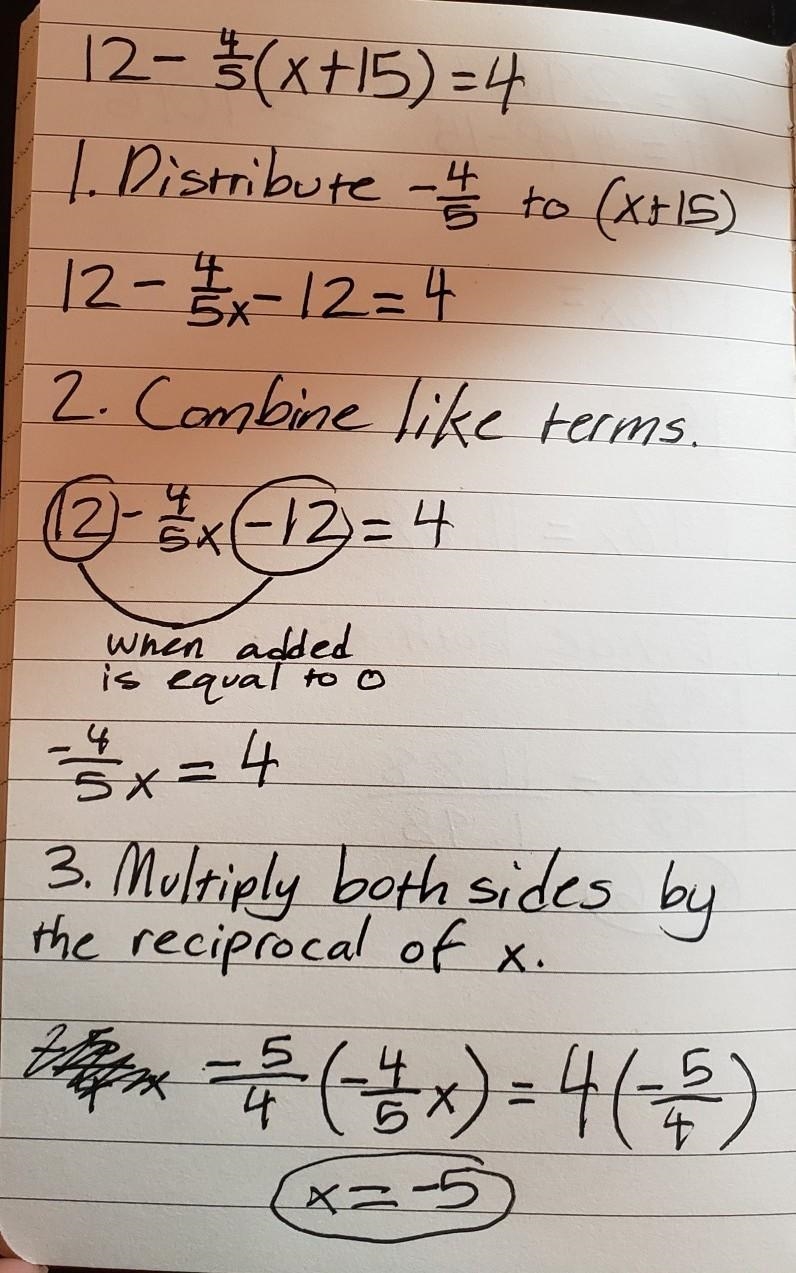 12 - 4/5(x+15) = 4
1. Distribute -4/5 to (x+15)
12 - 4/5x - 12 = 4
2. Combine like terms.
12 - 4/5x -12 = 4
when added
is equal to 0
-4/5x = 4
3. Multiply both sides by
the reciprocal of x.
-5/4(-4/5x) = 4(-5/4)
x = -5